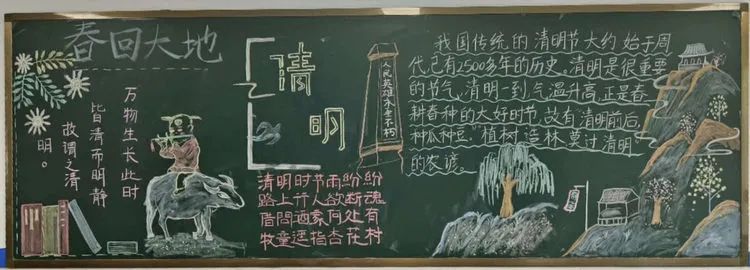 春回大地
万物生长此时
皆清而明静
故谓之清
明。
清明
人民英雄永垂不朽
清明时节雨纷纷
路上行人欲断魂
借問酒家何处有
牧童遥指杏花村
我国传统的清明节大约始于周
代已有2500多年的历史。清明是很重要
的节气,清明一到气温升高正是春
耕春种的大好时节,故有清明前后,
种瓜种豆。"植树造林莫过清明"
的农谚。